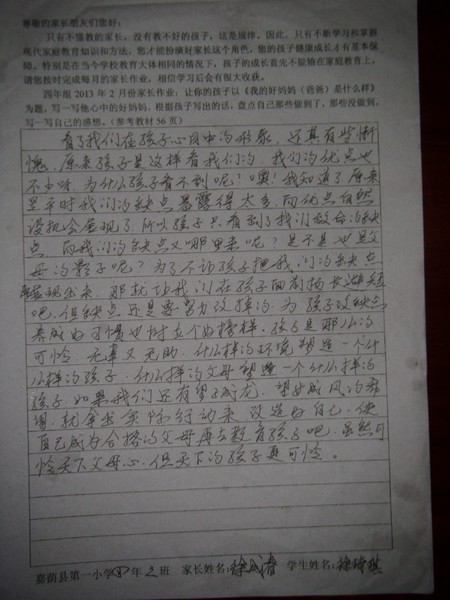 尊敬的家长朋友们您好:
只有不懂教的家长,没有教不好的孩子,这是规律。因此,只有不断学习和掌握
现代家庭教育知识和方法,您才能扮演好家长这个角色,您的孩子健康成长才有基本保
障。特别是在当今学校教育大体相同的情况下,孩子的成长首先不能输在家庭教育上。
请您按时完成每月的家长作业,相信学习后会有很大收获。
四年级 2013 年 2 月份家长作业:让你的孩子以《我的好妈妈(爸爸)是什么样》
为题,写一写他心中的好妈妈。根据孩子写出的话,盘点自己那些做到了,那些没做到,
写一写自己的感想。(参考教材 56 页)
看了我们在孩子心目中的形象,还真有些惭
愧,原来孩子是这样看我们的,我们的优点也
不少呀,为什么孩子看不到呢!噢!我知道了原来
是平时我们的缺点暴露得太多,而优点自然
没机会展现了,所以孩子只看到了我们的缺
点,而我们的缺点又哪里来呢?是不是也是父
母的影子呢?为了不让孩子把我们的缺点
展现出来,那就让我们在孩子面前扬长避短
吧,但缺点还是要努力改掉的,为孩子改缺点
养成好习惯也树立个好榜样,孩子是那么的
可怜,无辜又无助,什么样的环境塑造一个什
么样的孩子,什么样的父母塑造一个什么样的
孩子,如果我们还有望子成龙,望女成凤的希
望,就拿出实际行动来,改造好自己,使
自己成为合格的父母再去教育孩子吧,虽然可
怜天下父母心,但天下的孩子更可怜。
嘉荫县第一小学四年2班 家长姓名:徐成 学生姓名:徐